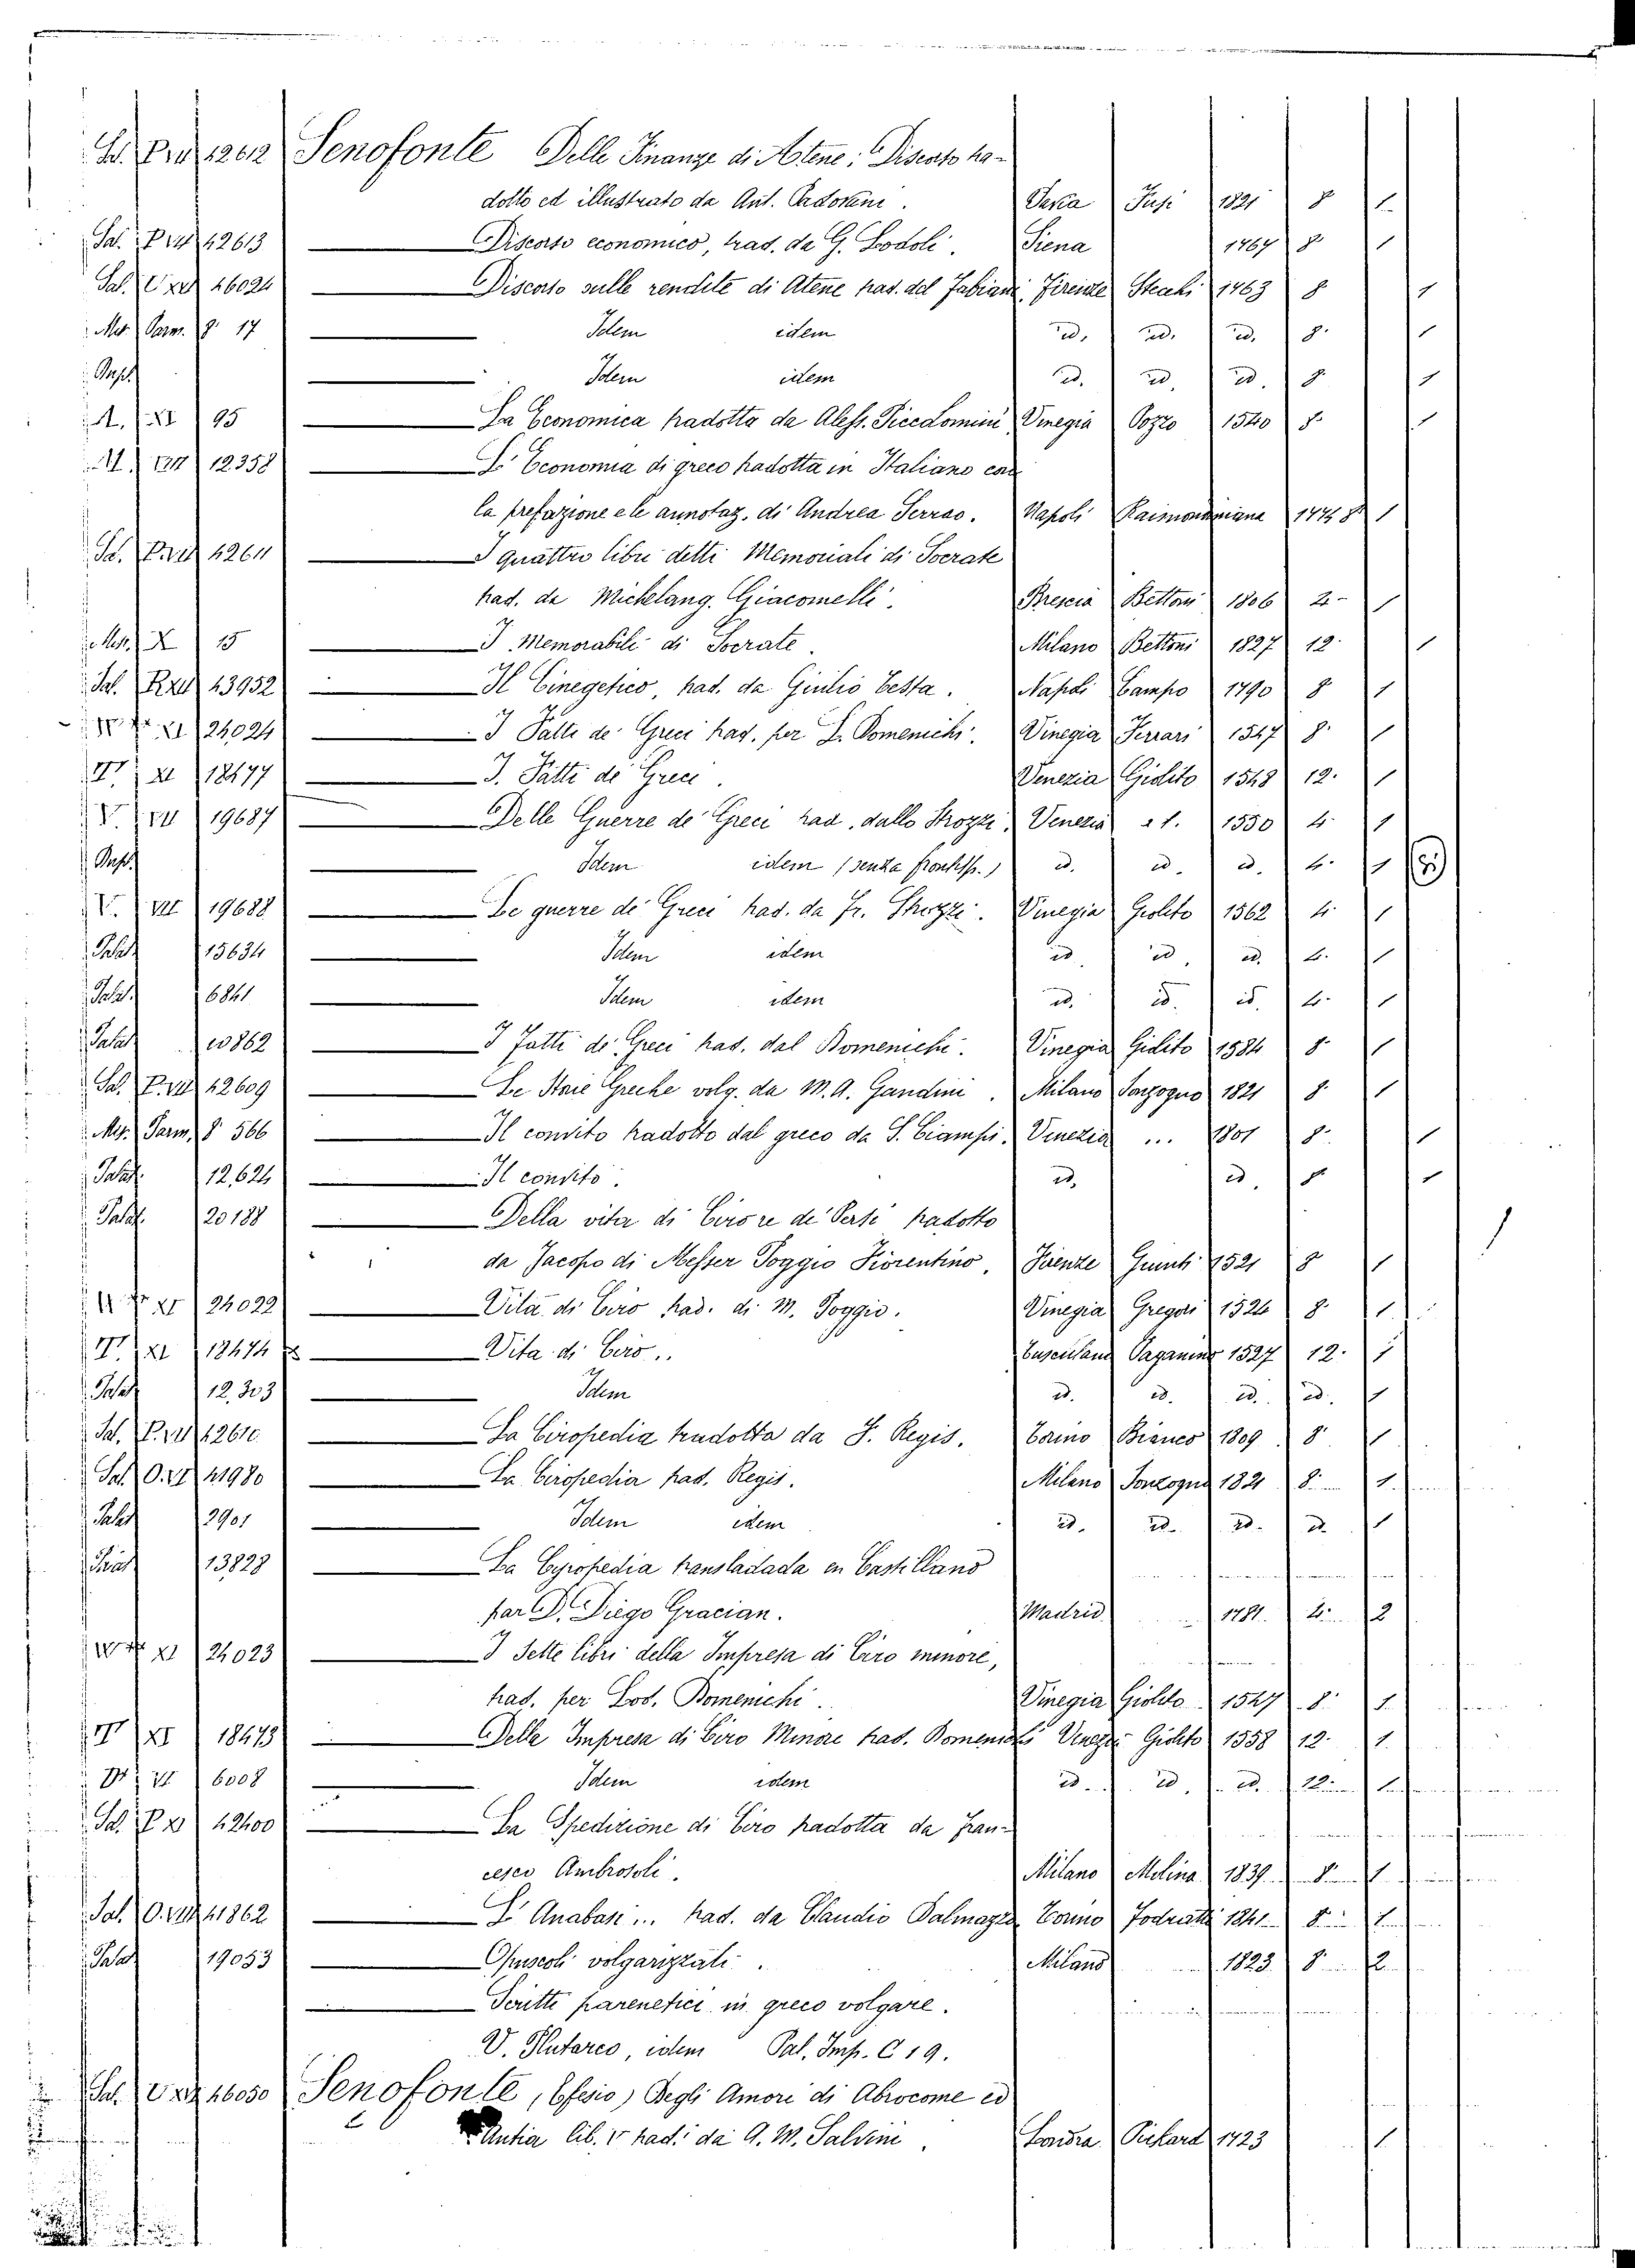 Senofonte Delle Finanze di Atene: Discorso tra-
dotto ed illustrato da Ant. Padovini. Pavia Fusi 1821 8 1
Sal. 42613 Discorso economico, trad. da G. Lodoli. Siena 1767 8 1
Sal. 46024 Discorso sulle rendite di Atene trad. del Fabiani. Firenze Stecchi 1763 8 1
Parm. 8. 17 Idem idem id. id. id. 8. 1
Idem idem id. id. id. 8 1
A. XI 95 La Economica tradotta da Aless. Piccolomini Vinegia Pozzo 1540 8 1
12358 L'Economia di greco tradotta in Italiano con
la prefazione e le annotaz. di Andrea Serrao. Napoli Raimondiana 8 1
I quattro libri detti Memoriali di Socrate
trad. da Michelang. Giacomelli. Brescia Bettoni 1806 1
X 15 I Memorabili di Socrate. Milano Bettoni 1827 12. 1
Sal. 43952 Il Cinegetico, trad. da Giulio Testa. Napoli Campo 1790 8 1
24024 I Fatti de' Greci trad. per L. Domenichi. Vinegia Ferrari 1547 8. 1
18477 I. Fatti de' Greci. Venezia Giolito 1548 12. 1
V. 19687 Delle Guerre de' Greci trad. dallo Strozzi. Venezia 1550 4. 1
Idem idem (senza frontesp.) id. id. id. 4. 1
V. 19688 Le guerre de' Greci trad. da Fr. Strozzi. Vinegia Giolito 1562 4. 1
Palat. 15634 Idem idem id. id. id. 4. 1
Palat. 6841 Idem idem id. id. id. 4. 1
Palat. 10862 I Fatti de' Greci trad. dal Domenichi. Vinegia Giolito 1584 8 1
Sal. 42609 Le Storie Greche volg. da M. A. Gandini. Milano Sonzogno 1821 8. 1
Parm. 8. 566 Il convito tradotto dal greco da S. Ciampi. Venezia ... 1801 8. 1
Palat. 12,624 Il convito. id. id. 8 1
Palat. 20188 Della vita di Ciro re de' Persi tradotto
da Jacopo di Messer Poggio Fiorentino. Firenze Giunti 1521 8 1
24022 Vita di Ciro trad. di M. Poggio. Vinegia Gregori 8. 1
18474 Vita di Ciro.. Tusculano Paganino 1527 12. 1
Palat. 12,303 Idem id. id. id. id. 1
Sal. 42610. La Ciropedia tradotta da F. Regis. Torino Bianco 1809 8. 1
Sal. 41980 La Ciropedia trad. Regis. Milano Sonzogno 1821 8. 1.
Palat. 2901 Idem idem id. id. id. id. 1
13828 La Cyropedia transladada en Castillano
par D. Diego Gracian. Madrid 1781. 4. 2
24023 I Sette libri della Impresa di Ciro minore,
trad. per Lod. Domenichi. Vinegia Giolito 1547 8. 1.
XI 18473 Delle Impresa di Ciro Minore trad. Domenichi Giolito 1558 12. 1.
6008 Idem idem id. id. id. 12. 1
Sal. 42400 La Spedizione di Ciro tradotta da Fran-
cesco Ambrosoli. Milano Molina 1839 8 1
Sal. 41862 L'Anabasi... trad. da Claudio Dalmazzo Torino Fodratti 1841 8 1
Palat. 19053 Opuscoli volgarizzati. Milano 1823 8. 2.
Scritti parenetici in greco volgare.
V. Plutarco, idem Pal. Imp. C 19.
Sal. 46050 Senofonte, (Efesio) Degli Amori di Abrocome ed
Antia lib. V trad. da A. M. Salvini. Londra Pickard 1723 1.